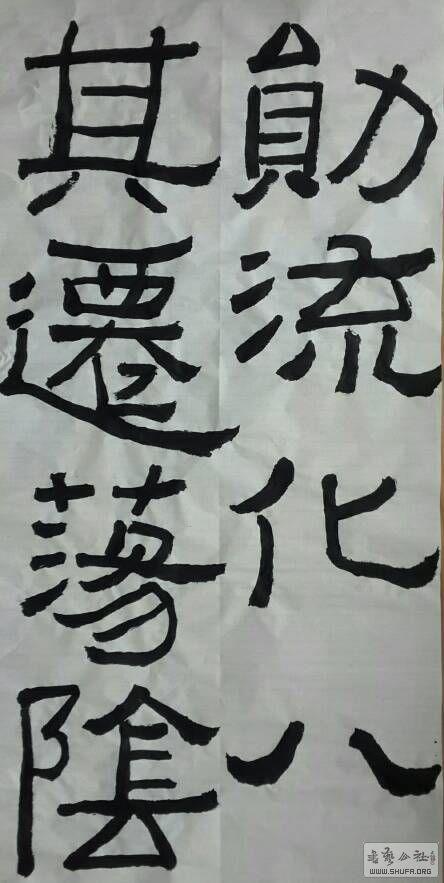 勛流化八
其遷蕩陰
書藝公社
WWW.SHUFA.ORG